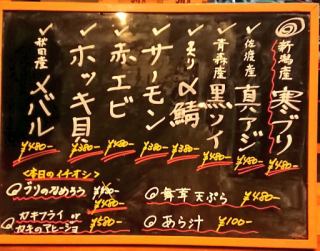 新潟産 寒ブリ ¥480-
佐渡産 真アジ ¥480-
青森産 黒ソイ ¥480-
〆鯖 ¥380-
サーモン ¥380-
赤エビ ¥480-
ホッキ貝 ¥380-
秋田産 メバル ¥480-
本日のイチオシ
ブリのなめろう ¥480-
舞茸天ぷら ¥480-
カキフライ or カキのアヒージョ ¥580-
あら汁 ¥100-